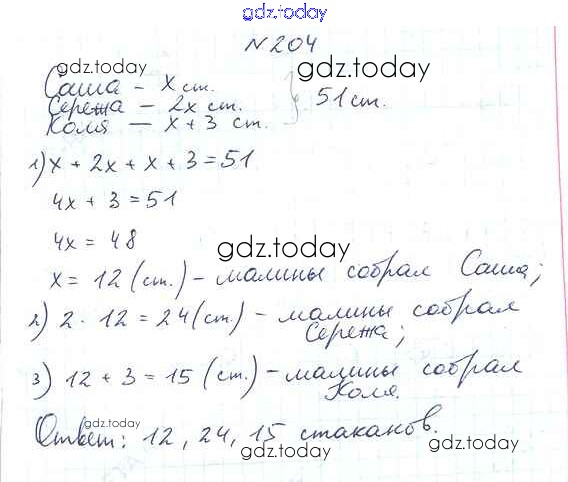 gdz.today
N 204
gdz.today
gdz.today
Саша - x ст.
Сережа - 2x ст.
Коля - x + 3 ст.
51 ст.
gdz.today
1) x + 2x + x + 3 = 51
4x + 3 = 51
4x = 48
gdz.today
x = 12 (ст.) - малины собрал Саша;
2) 2 · 12 = 24 (ст.) - малины собрал
Сережа;
3) 12 + 3 = 15 (ст.) - малины собрал
Коля.
gdz.today
Ответ: 12, 24, 15 стаканов.
gdz.today